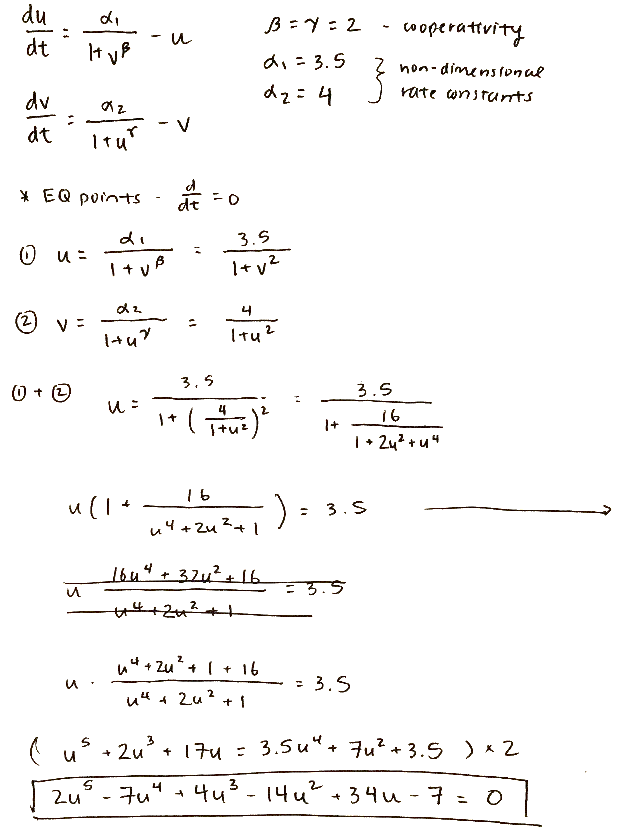 du/dt = α₁/(1+v^β) - u
β = γ = 2 - cooperativity
α₁ = 3.5 } non-dimensional
α₂ = 4 } rate constants
dv/dt = α₂/(1+u^γ) - v
* EQ points - d/dt = 0
① u = α₁/(1+v^β) = 3.5/(1+v²)
② v = α₂/(1+u^γ) = 4/(1+u²)
① + ② u = 3.5/(1+(4/(1+u²))²) = 3.5/(1+16/(1+2u²+u⁴))
u(1 + 16/(u⁴+2u²+1)) = 3.5 →
u (16u⁴+32u²+16)/(u⁴+2u²+1) = 3.5
u · (u⁴+2u²+1+16)/(u⁴+2u²+1) = 3.5
( u⁵ + 2u³ + 17u = 3.5u⁴ + 7u² + 3.5 ) × 2
2u⁵ - 7u⁴ + 4u³ - 14u² + 34u - 7 = 0